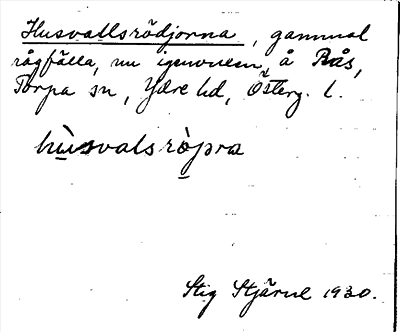 Husvallsrödjorna, gammal
rågfälla, nu igenvuxen, å Rås,
Torpa sn, Ydre hd, Österg. l.
hùsvalsròjna
Stig Stjärne 1930.